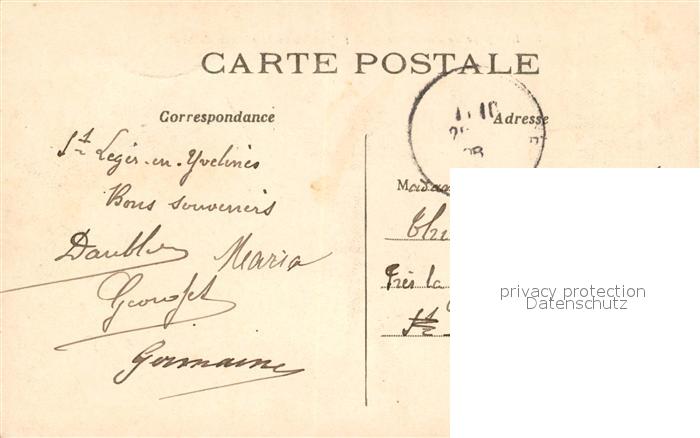 CARTE POSTALE
Correspondance
Adresse
St Leger-en-Yvelines
Bons souvenirs
Maria
Germaine
Madam
Près la
St
privacy protection
Datenschutz